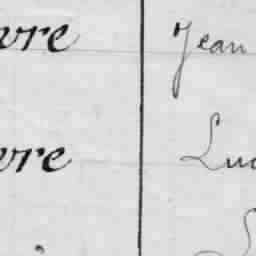 vre Jean
vre Luc